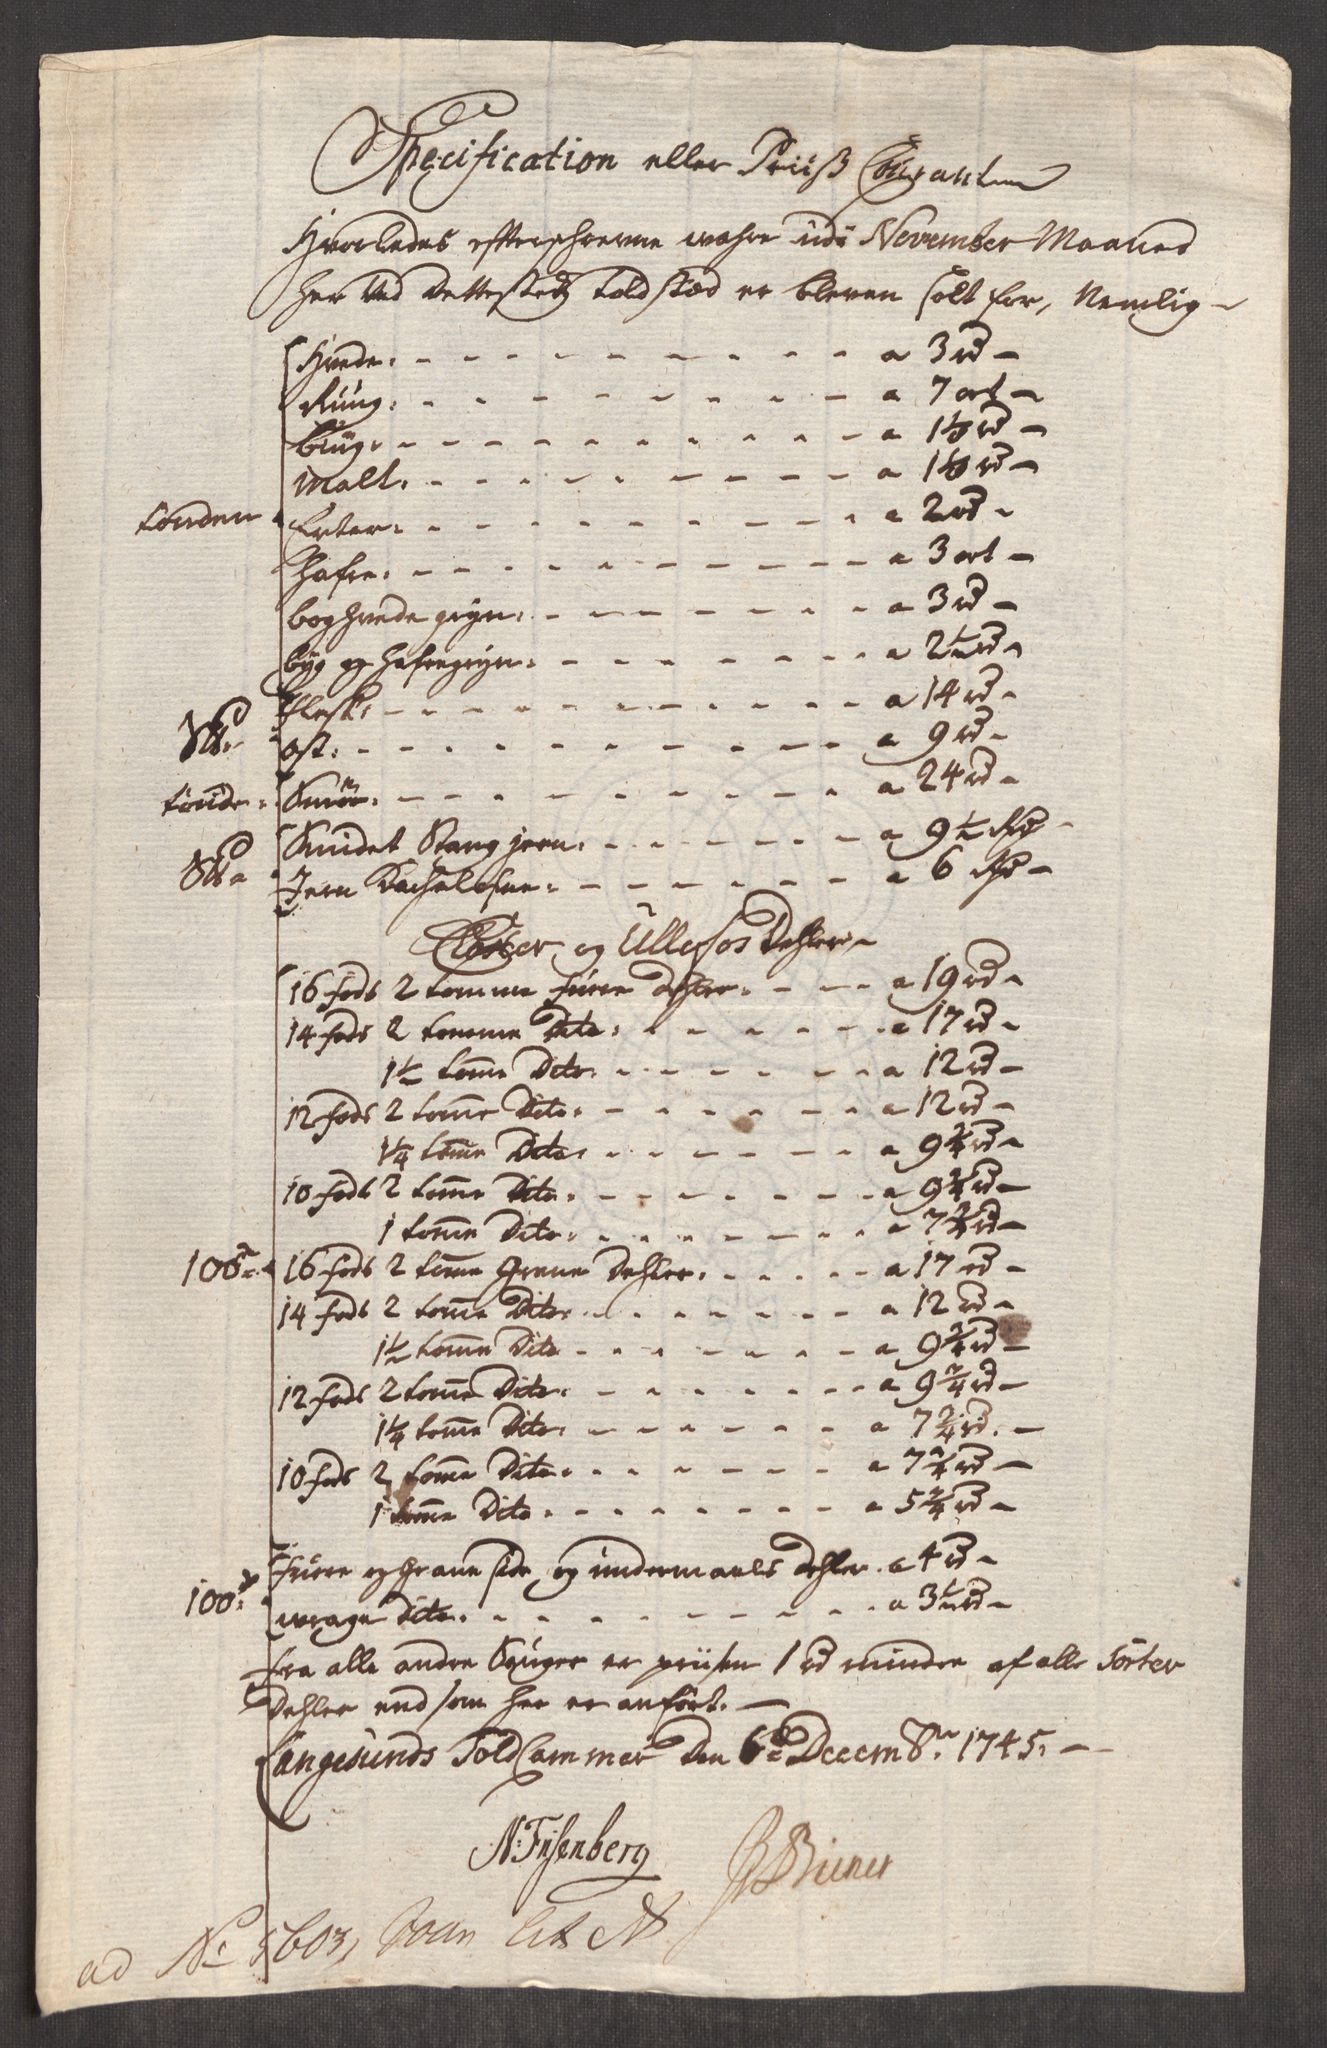 Specification eller Priiß Courant
Hvorledes efterschrevne wahre udi November Maaned
her ved dette steds Told stæd er bleven solt for, Nemlig
Hvede. a 3 rd
Rüug. a 7 ort
büg. a 1½ rd
Malt. a 1½ rd
tönden Erter. a 2 rd
Hafre. a 3 ort
boghvede gryn. a 3 rd
büg og hafregryn. a 2½ rd
Flesk. a 14 rd
ost. a 9 rd
tönde Smör. a 24 rd
Smidet Stang jern. a 9½ Rd
Jern Kachelofne. a 6 Rd
Closter og Ullefos Dehler
16 fods 2 tomme furre dehler. a 19 rd
14 fods 2 tomme Dito. a 17 rd
1½ tome Dito. a 12 rd
12 fods 2 tome Dito. a 12 rd
1¼ tome Dito. a 9¾ rd
10 fods 2 tome Dito. a 9¾ rd
1 tome Dito. a 7¾ rd
100 16 fods 2 tome Grane Dehler. a 17 rd
14 fods 2 tome Dito. a 12 rd
1½ tome Dito a 9¾ rd
12 fods 2 tome Dito. a 9¾ rd
1¼ tome Dito. a 7 2/4 rd.
10 fods 2 tome Dito. a 7¾ rd
1 tome Dito. a 5¾ rd
furre og Grane side og undermaals dehler. a 4 rd
100 wrage dito. a 3½ rd
fra alle andre Sauger er priisen 1 rd mindre af alle Sorter
Dehler end som her er anfört.
Langesunds Told Cammer Den 6te Decemb. 1745.
ad No 5603,